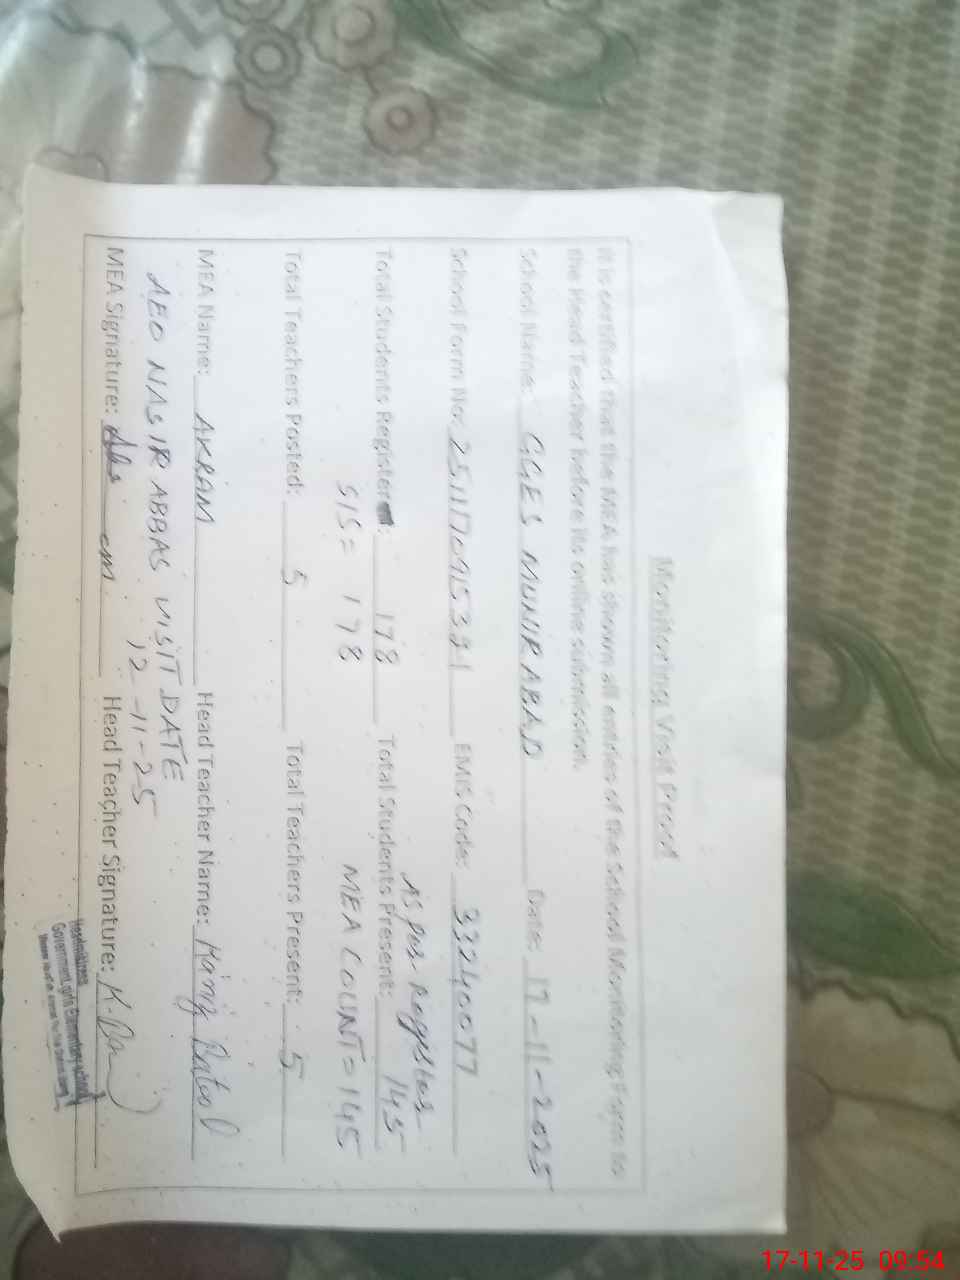 Monitoring Visit Proof
It is certified that the MEA has shown all entries of the School Monitoring Form to
the Head Teacher before its online submission.
School Name: GGES MUNIRABAD Date: 17-11-2025
School Form No: EMIS Code: 33240077
As per Register
Total Students Register: 178 Total Students Present: 145
SIS = 178 MEA COUNT = 145
Total Teachers Posted: 5 Total Teachers Present: 5
MEA Name: AKRAM Head Teacher Name: Batool
AEO NASIR ABBAS VISIT DATE
12-11-25
MEA Signature: Head Teacher Signature:
Headmistress
Government girls Elementary school
17-11-25 09:54